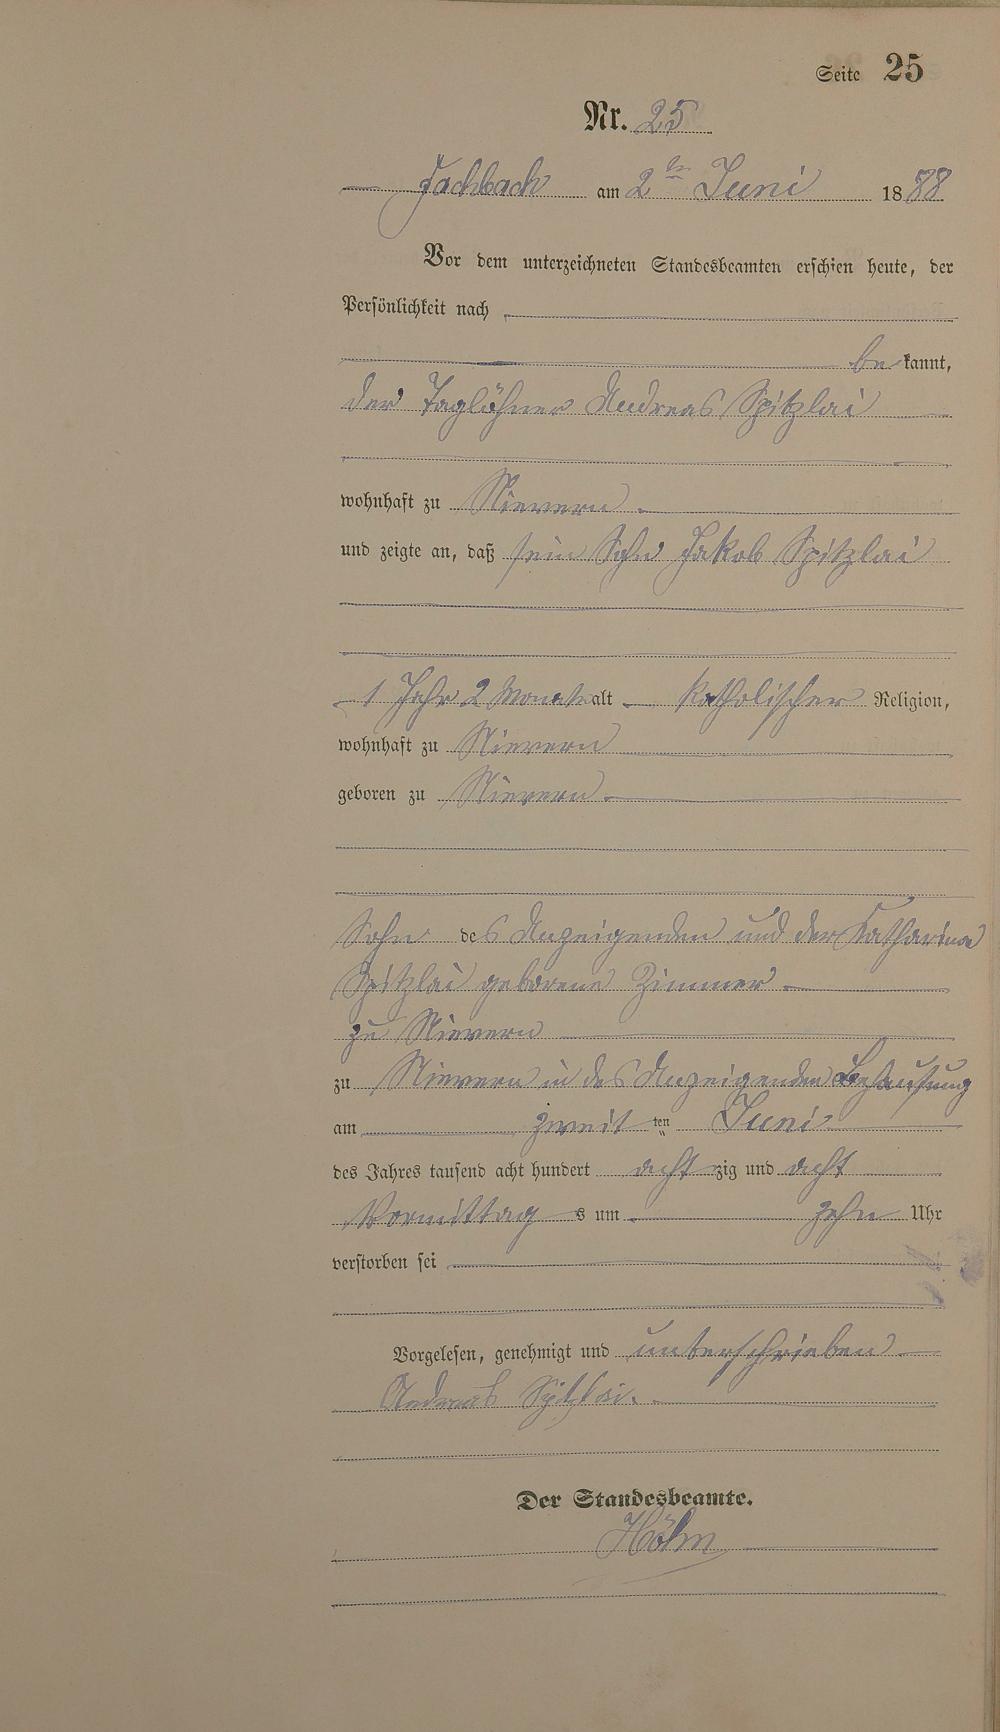 Seite 25
Nr. 25
Fachbach am 2ten Juni 1888
Vor dem unterzeichneten Standesbeamten erschien heute, der
Persönlichkeit nach
be kannt,
der Taglöhner Andreas Spitzlai
wohnhaft zu Nievern
und zeigte an, daß sein Sohn Jakob Spitzlai
1 Jahr 2 Monate alt katholischer Religion,
wohnhaft zu Nievern
geboren zu Nievern
Sohn des Anzeigenden und der Katharina
Spitzlai geborene Zimmer
zu Nievern
zu Nievern in des Anzeigenden Behausung
am zweit ten Juni
des Jahres tausend acht hundert acht zig und acht
Vormittag s um zehn Uhr
verstorben sei
Vorgelesen, genehmigt und unterschrieben
Andreas Spitzlai.
Der Standesbeamte.
Höhn